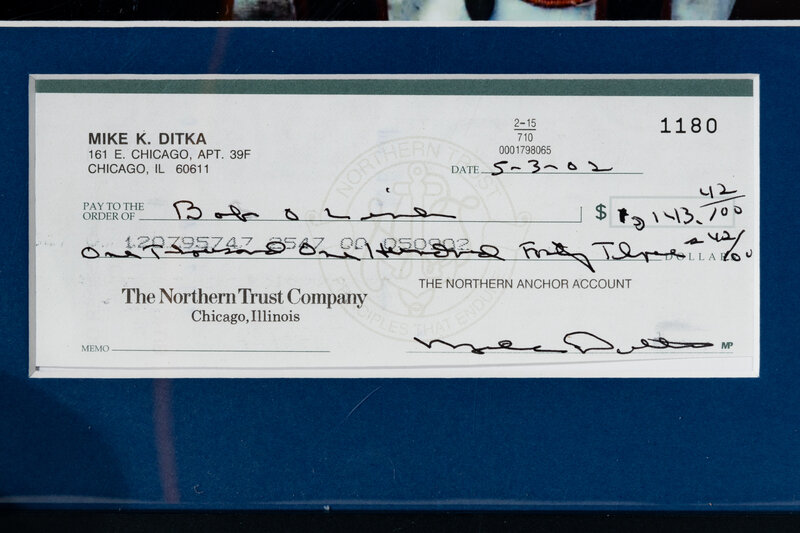 2-15
710
1180
MIKE K. DITKA
0001798065
161 E. CHICAGO, APT. 39F
CHICAGO, IL 60611
DATE 5-3-02
PAY TO THE
ORDER OF Bob O
$ 1,143. 42/100
One Thousand One Hundred Forty Three & 42/100 DOLLARS
The Northern Trust Company
THE NORTHERN ANCHOR ACCOUNT
Chicago, Illinois
MEMO Mike Ditka MP
NORTHERN TRUST
PRINCIPLES THAT ENDURE